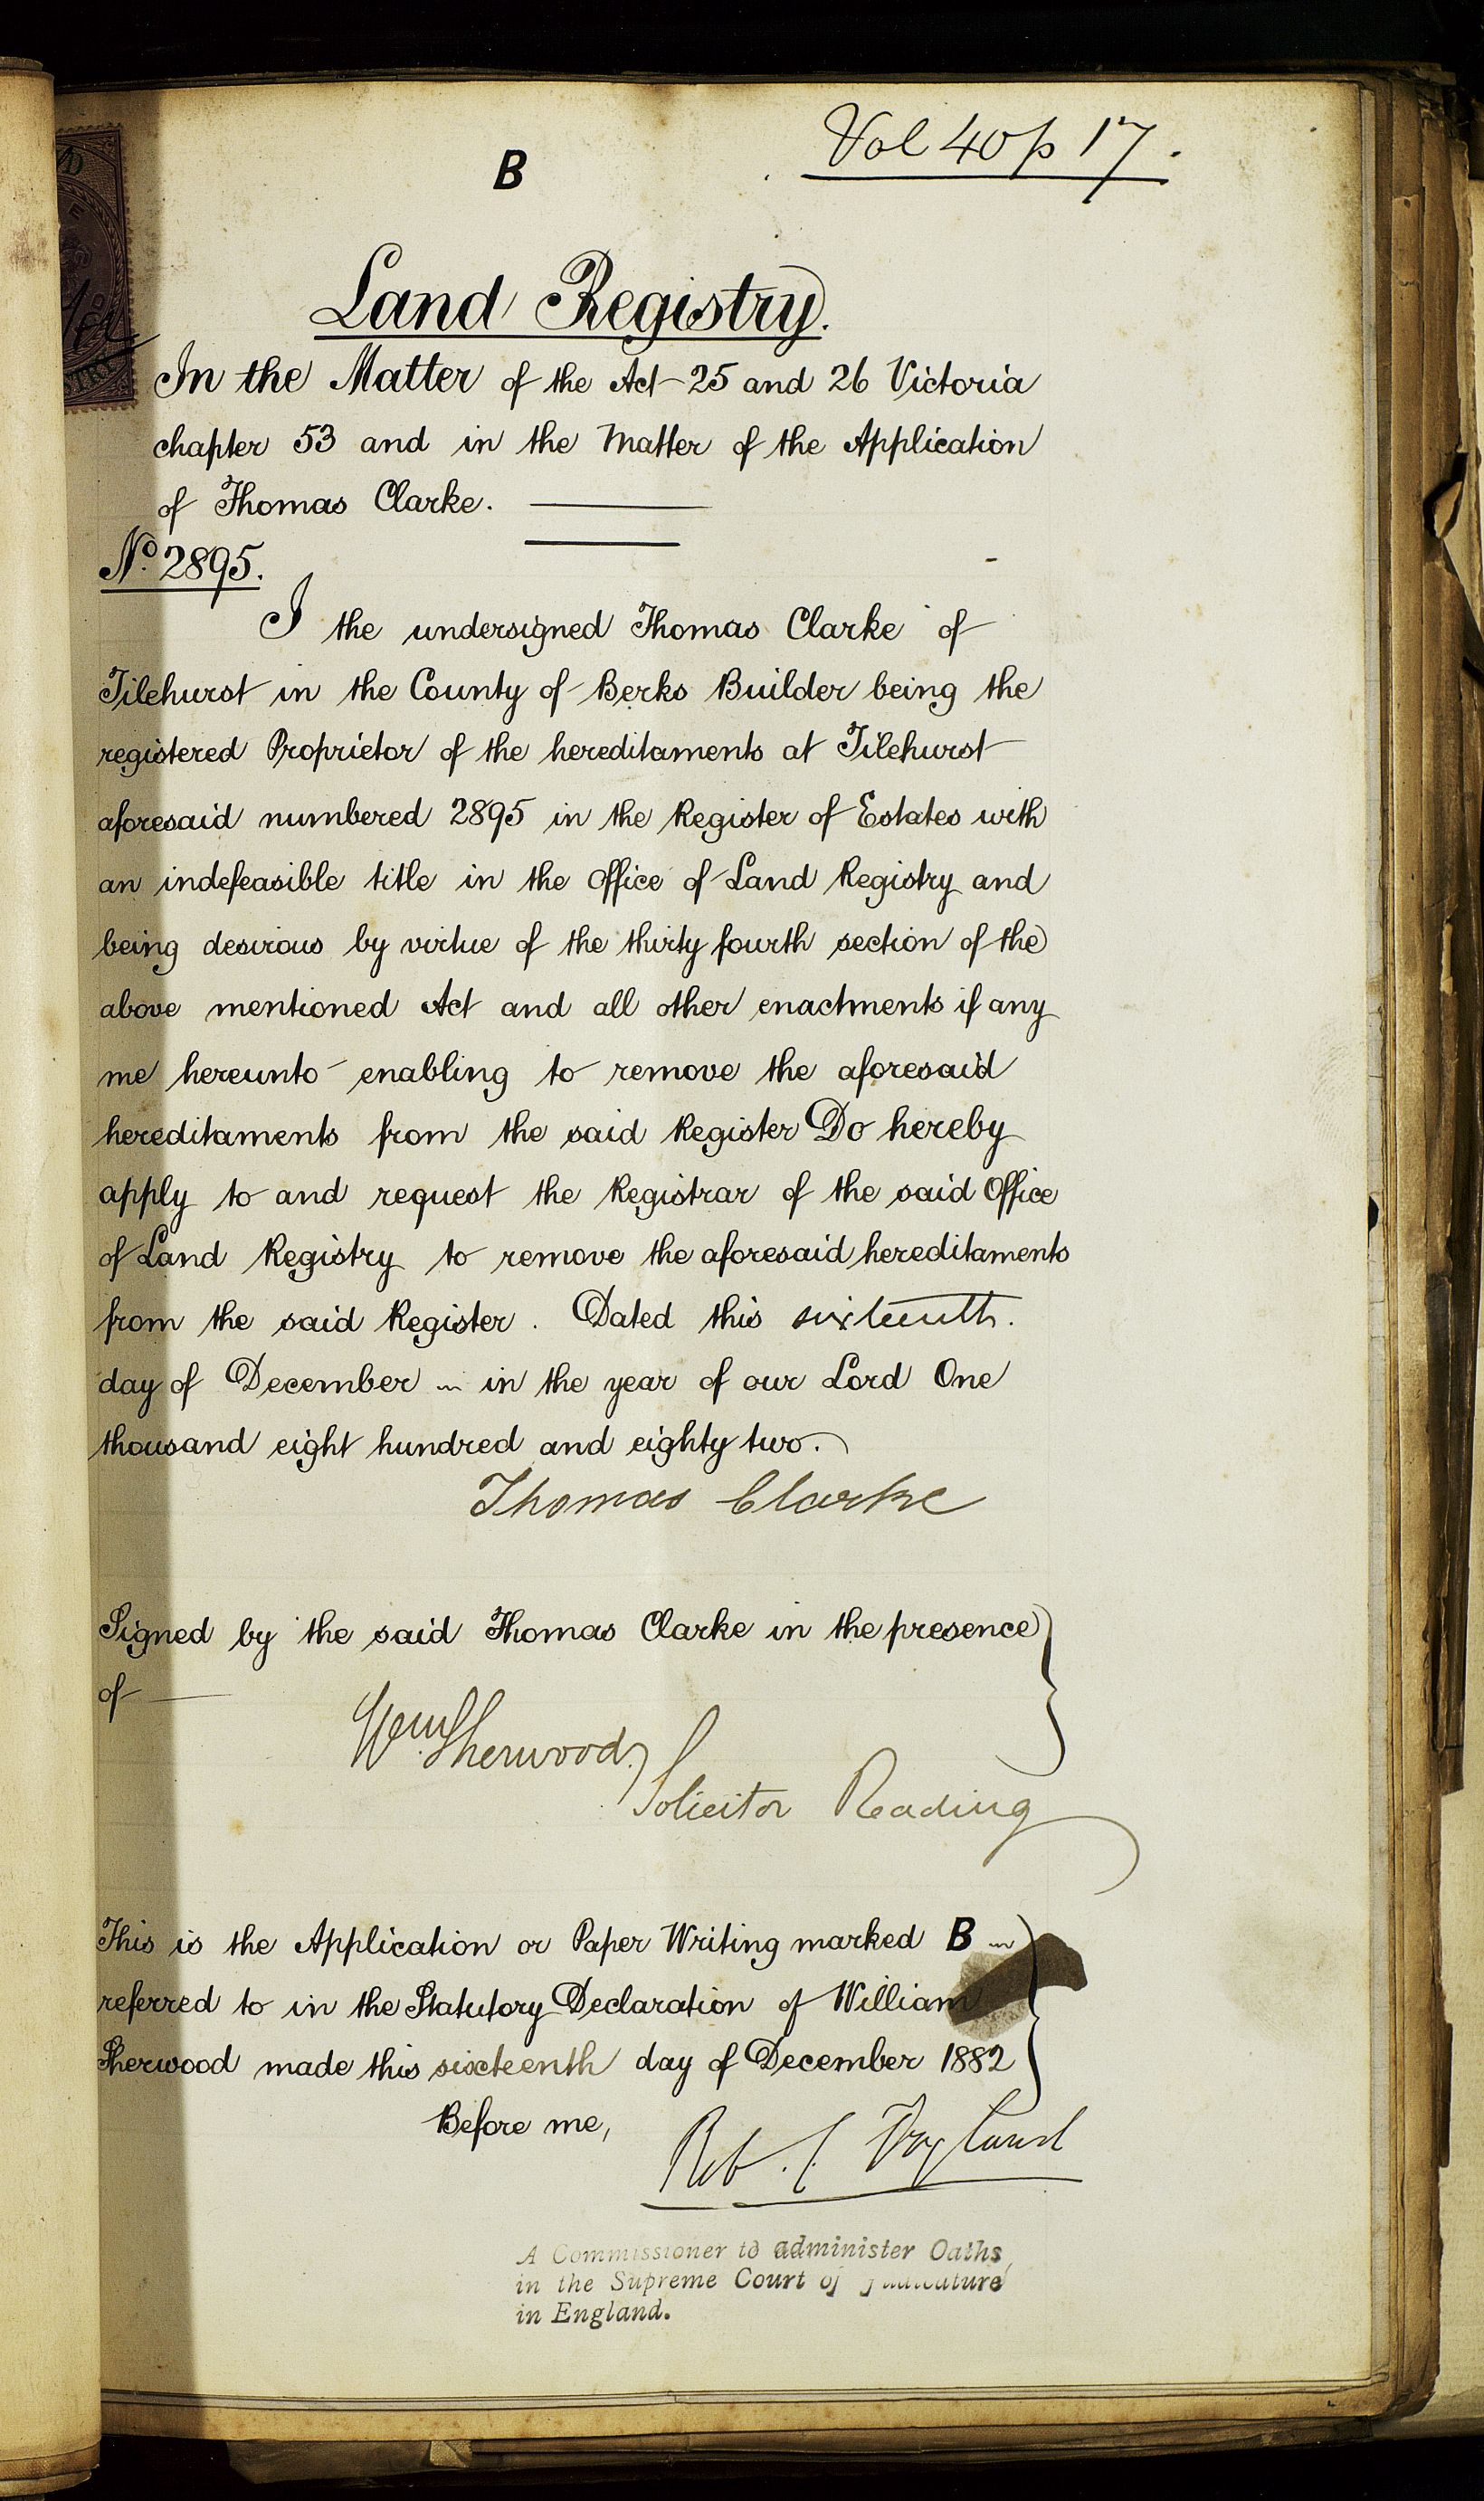 Vol 40 p 17.
B
Land Registry.
In the Matter of the Act 25 and 26 Victoria
chapter 53 and in the Matter of the Application
of Thomas Clarke.
No. 2895.
I the undersigned Thomas Clarke of
Tilehurst in the County of Berks Builder being the
registered Proprietor of the hereditaments at Tilehurst
aforesaid numbered 2895 in the Register of Estates with
an indefeasible title in the Office of Land Registry and
being desirous by virtue of the thirty fourth section of the
above mentioned Act and all other enactments if any
me hereunto enabling to remove the aforesaid
hereditaments from the said Register Do hereby
apply to and request the Registrar of the said Office
of Land Registry to remove the aforesaid hereditaments
from the said Register. Dated this sixteenth.
day of December in the year of our Lord One
thousand eight hundred and eighty two.
Thomas Clarke
Signed by the said Thomas Clarke in the presence
of
Wm Sherwood,
Solicitor Reading
This is the Application or Paper Writing marked B
referred to in the Statutory Declaration of William
Sherwood made this sixteenth day of December 1882
Before me,
A Commissioner to administer Oaths
in the Supreme Court of Judicature
in England.